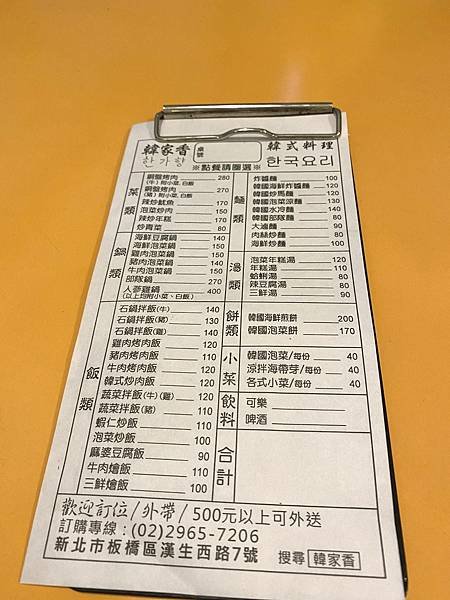 韓家香 桌號 韓式料理
한가향 ※點餐請圈選※ 한국요리
菜類
銅盤烤肉(牛)附小菜,白飯 280
銅盤烤肉(豬)附小菜,白飯 270
辣炒魷魚 170
泡菜炒肉 150
辣炒年糕 170
炒青菜 80
鍋類
海鮮豆腐鍋 140
海鮮泡菜鍋 150
雞肉泡菜鍋 150
豬肉泡菜鍋 140
牛肉泡菜鍋 150
部隊鍋 270
人蔘雞鍋 400
(以上均附小菜、白飯)
飯類
石鍋拌飯(牛) 140
石鍋拌飯(豬) 130
石鍋拌飯(雞) 140
雞肉烤肉飯 120
豬肉烤肉飯 110
牛肉烤肉飯 120
韓式炒肉飯 120
蔬菜拌飯(牛)(雞) 120
蔬菜拌飯(豬) 110
蝦仁炒飯 110
泡菜炒飯 100
麻婆豆腐飯 90
牛肉燴飯 110
三鮮燴飯 100
麵類
炸醬麵 100
韓國海鮮炸醬麵 120
韓國炒馬麵 120
韓國泡菜涼麵 130
韓國水冷麵 140
韓國部隊麵 120
大滷麵 90
肉絲炒麵 80
海鮮炒麵 100
湯類
泡菜年糕湯 120
年糕湯 110
蛤蜊湯 80
辣豆腐湯 80
三鮮湯 90
餅類
韓國海鮮煎餅 200
韓國泡菜餅 170
小菜
韓國泡菜/每份 40
涼拌海帶芽/每份 40
各式小菜/每份 40
飲料
可樂
啤酒
合計
歡迎訂位/外帶/500元以上可外送
訂購專線:(02)2965-7206
新北市板橋區漢生西路7號 搜尋 韓家香